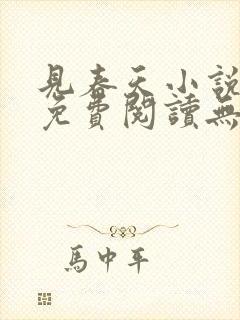 見春天小說
免費閱讀無
馬中平